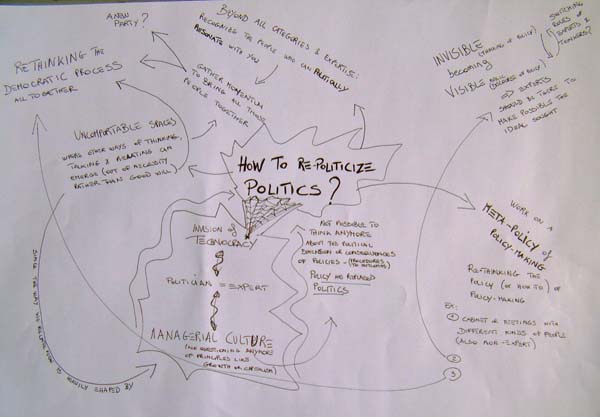 A NEW
PARTY?
RETHINKING THE
DEMOCRATIC PROCESS
ALL TOGETHER
BEYOND ALL CATEGORIES & EXPERTISE:
RECOGNISE THE PEOPLE WHO CAN POLITICALLY
RESONATE WITH YOU
GATHER MOMENTUM
TO BRING ALL THOSE
PEOPLE TOGETHER
UNCOMFORTABLE SPACES
WHERE OTHER WAYS OF THINKING,
TALKING & RELATING CAN
EMERGE (OUT OF NECESSITY
RATHER THAN GOOD WILL)
HOW TO RE-POLITICIZE
POLITICS?
INVISIBLE
becoming
VISIBLE
SWITCHING
ROLES OF
EXPERTS &
THINKERS?
⇒ EXPERTS
SHOULD BE THERE TO
MAKE POSSIBLE THE
IDEAL SOUGHT
INVASION of
TECHNOCRACY
POLITICIAN = EXPERT
MANAGERIAL CULTURE
(NOT QUESTIONING ANYMORE
OF PRINCIPLES LIKE
GROWTH OR CAPITALISM)
NOT POSSIBLE TO
THINK ANYMORE
ABOUT THE POLITICAL
DIMENSION OR CONSEQUENCES
OF POLICIES
POLICY HAS REPLACED
POLITICS
WORK ON A
META-POLICY of
POLICY-MAKING
RE-THINKING THE
POLICY (OR HOW TO) OF
POLICY-MAKING
EX:
① CABINET OR MEETINGS WITH
DIFFERENT KINDS OF PEOPLE
(ALSO NON-EXPERT)
②
③
SINCE THE WAY WE
IS HEAVILY SHAPED BY